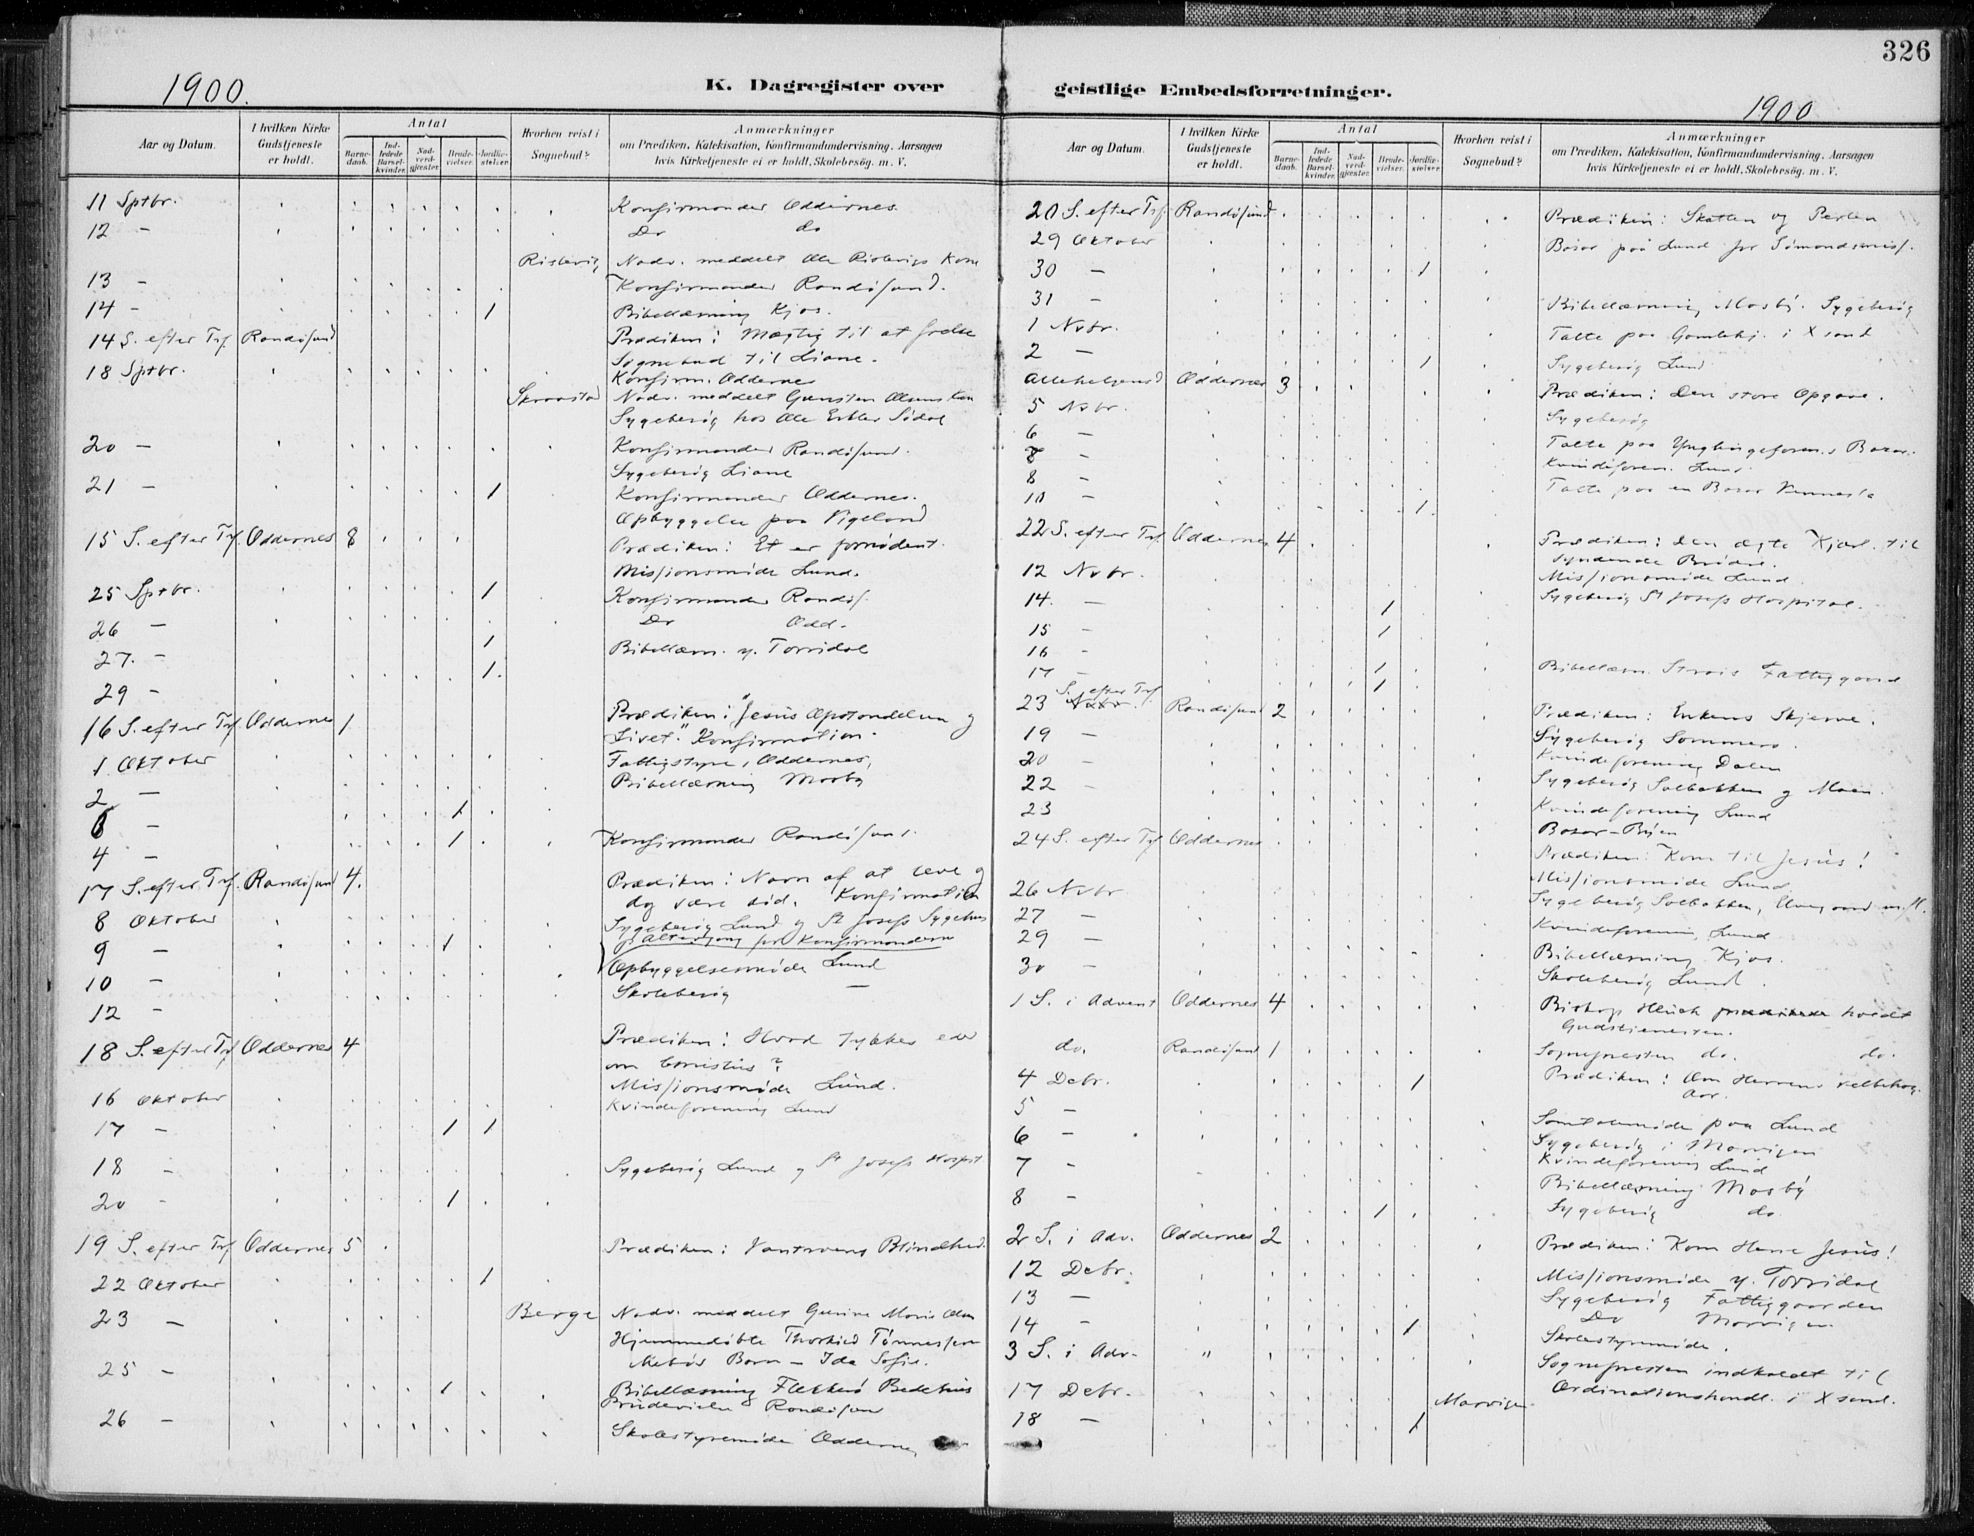 326
1900.
K. Dagregister over
geistlige Embedsforretninger.
1900
Aar og Datum.
I hvilken Kirke Gudstjeneste er holdt.
Antal
Barnedaab.
Indledede Barselkvinder.
Nadverdgjester.
Brudevielser.
Jordfæstelser.
Hvorhen reist i Sognebud?
Anmærkninger
om Prædiken, Katekisation, Konfirmandundervisning. Aarsagen
hvis Kirketjeneste ei er holdt. Skolebesøg. m. V.
11 Sptbr. Konfirmander Oddernes.
12 — Do do
Risbevig Nadv. meddelt Ole Kone
13 — Konfirmander Randøsund.
14 - 1 Bibellæsning Kjos.
14 S. efter Trf. Randøsund Prædiken: Mægtig til at frelse
Sognebud til Liane.
18 Sptbr. Konfirm. Oddernes
Nadv. meddelt Olsens
Sygebesøg hos Ole
20 — Konfirmander Randøsund.
Sygebesøg Liane
21 — 1 Konfirmander Oddernes.
Opbyggelse paa Vigeland
15 S. efter Trf. Oddernes 8 Prædiken: Et er fornødent.
Missionsmøde Lund.
25 Sptbr. 1 Konfirmander Randøs.
26 — Do Odd.
27. — 1 Bibellæsn. y. Torridal
29 - 1.
16 S. efter Trf. Oddernes 1 Prædiken: Jesus Opstandelsen og
Livet." Konfirmation.
1 Oktober Fattigstyre, Oddernes,
2 — Bibellæsning Mosby
— 1
4 — 1 Konfirmander Randøsund.
17 S. efter Trf. Randøsund 4. Prædiken: Navn af at leve og
dog være død. Konfirmation
8 Oktober Sygebesøg Lund og St Josefs Sygehus
9 — 1 Altergang for Konfirmanderne
10 — Opbyggelsesmøde Lund
12 — Skolebesøg —
18 S. efter Trf Oddernes 4 Prædiken: Hvad tykkes eder
om Christus?
Missionsmøde Lund.
16 Oktober Kvindeforening Lund
17 - 1 1
18 - Sygebesøg Lund og St Josefs Hospit
20 - 1
19 S. efter Trf Oddernes 5 Prædiken: Vantroens Blindhed.
22 Oktober 1
23 — Berge Nadv. meddelt Gurine Marie Olsen
Hjemmedøbte Tønnessen
Barn — Ida Sofie.
25 — 1 Bibellæsning Flekkerø Bedehus
Brudevielse Randøsund
26 — Skolestyremøde Oddernes
Aar og Datum.
I hvilken Kirke Gudstjeneste er holdt.
Antal
Barnedaab.
Indledede Barselkvinder.
Nadverdgjester.
Brudevielser.
Jordfæstelser.
Hvorhen reist i Sognebud?
Anmærkninger
om Prædiken, Katekisation, Konfirmandundervisning. Aarsagen
hvis Kirketjeneste ei er holdt. Skolebesøg. m. V.
20 S. efter Trf. Randøsund Prædiken: Skatten og Perlen
29 Oktober Basar paa Lund for Sømandsmiss.
30 — 1
31 — Bibellæsning Mosby. Sygebesøg
1 Nvbr. Talte paa Gamlehj. i Xsand
2 — 1 Sygebesøg Lund
Allehelgensd Oddernes 3 Prædiken: Den store Opgave.
5 Nvbr. Sygebesøg
6 — Talte paa Ynglingeforen.s Basar.
8 — Kvindeforen. Lund
8 - Talte paa en Basar Vennesla
10 — 1
22 S. efter Trf. Oddernes 4 Prædiken: den ægte Kjærl. til
syndende Brødre.
12 Nvbr. Missionsmøde Lund.
14. — 1 Sygebesøg St Josefs Hospital.
15 — 1
16 -
17 — 1 Bibellæsn. Strais Fattiggaard
1
23 S. efter Trf. Randøsund 2 Prædiken: Enkens Skjerve.
19 — Sygebesøg
20 - Kvindeforening Dalen
22 - Sygebesøg Solbakken og Moen.
23 Kvindeforening Lund
Basar - Byen
24 S. efter Trf Oddernes Prædiken: Kom til Jesus!
Missionsmøde Lund
26 Nvbr Sygebesøg Solbakken, m. fl.
27 — Kvindeforening Lund
29 — Bibellæsning Kjos.
30 — Skolebesøg Lund.
1 S. i Advent Oddernes 4 Biskop Heuch prædikede holdt
Gudstjenesten.
do. Randøsund 1 Sognepresten do. do.
4 Debr. 1 Prædiken: Om Herrens velbehag.
Aar.
5 —
6 — Samtalemøde paa Lund
Sygebesøg i Marvigen
7 - Kvindeforening Lund
8 - Bibellæsning Mosby
1 Sygebesøg do
2 S. i Adv. Oddernes 2 Prædiken: Kom Herre Jesus!
12 Debr. Missionsmøde y. Torridal
13 — Sygebesøg Fattiggaarden
Do Marvigen
14 - 1 Skolestyremøde.
3 S. i Adv. " Sognepresten indkaldt til
17 Debr. Marvigen Ordinationshandl. i Xsand.
18 — 1